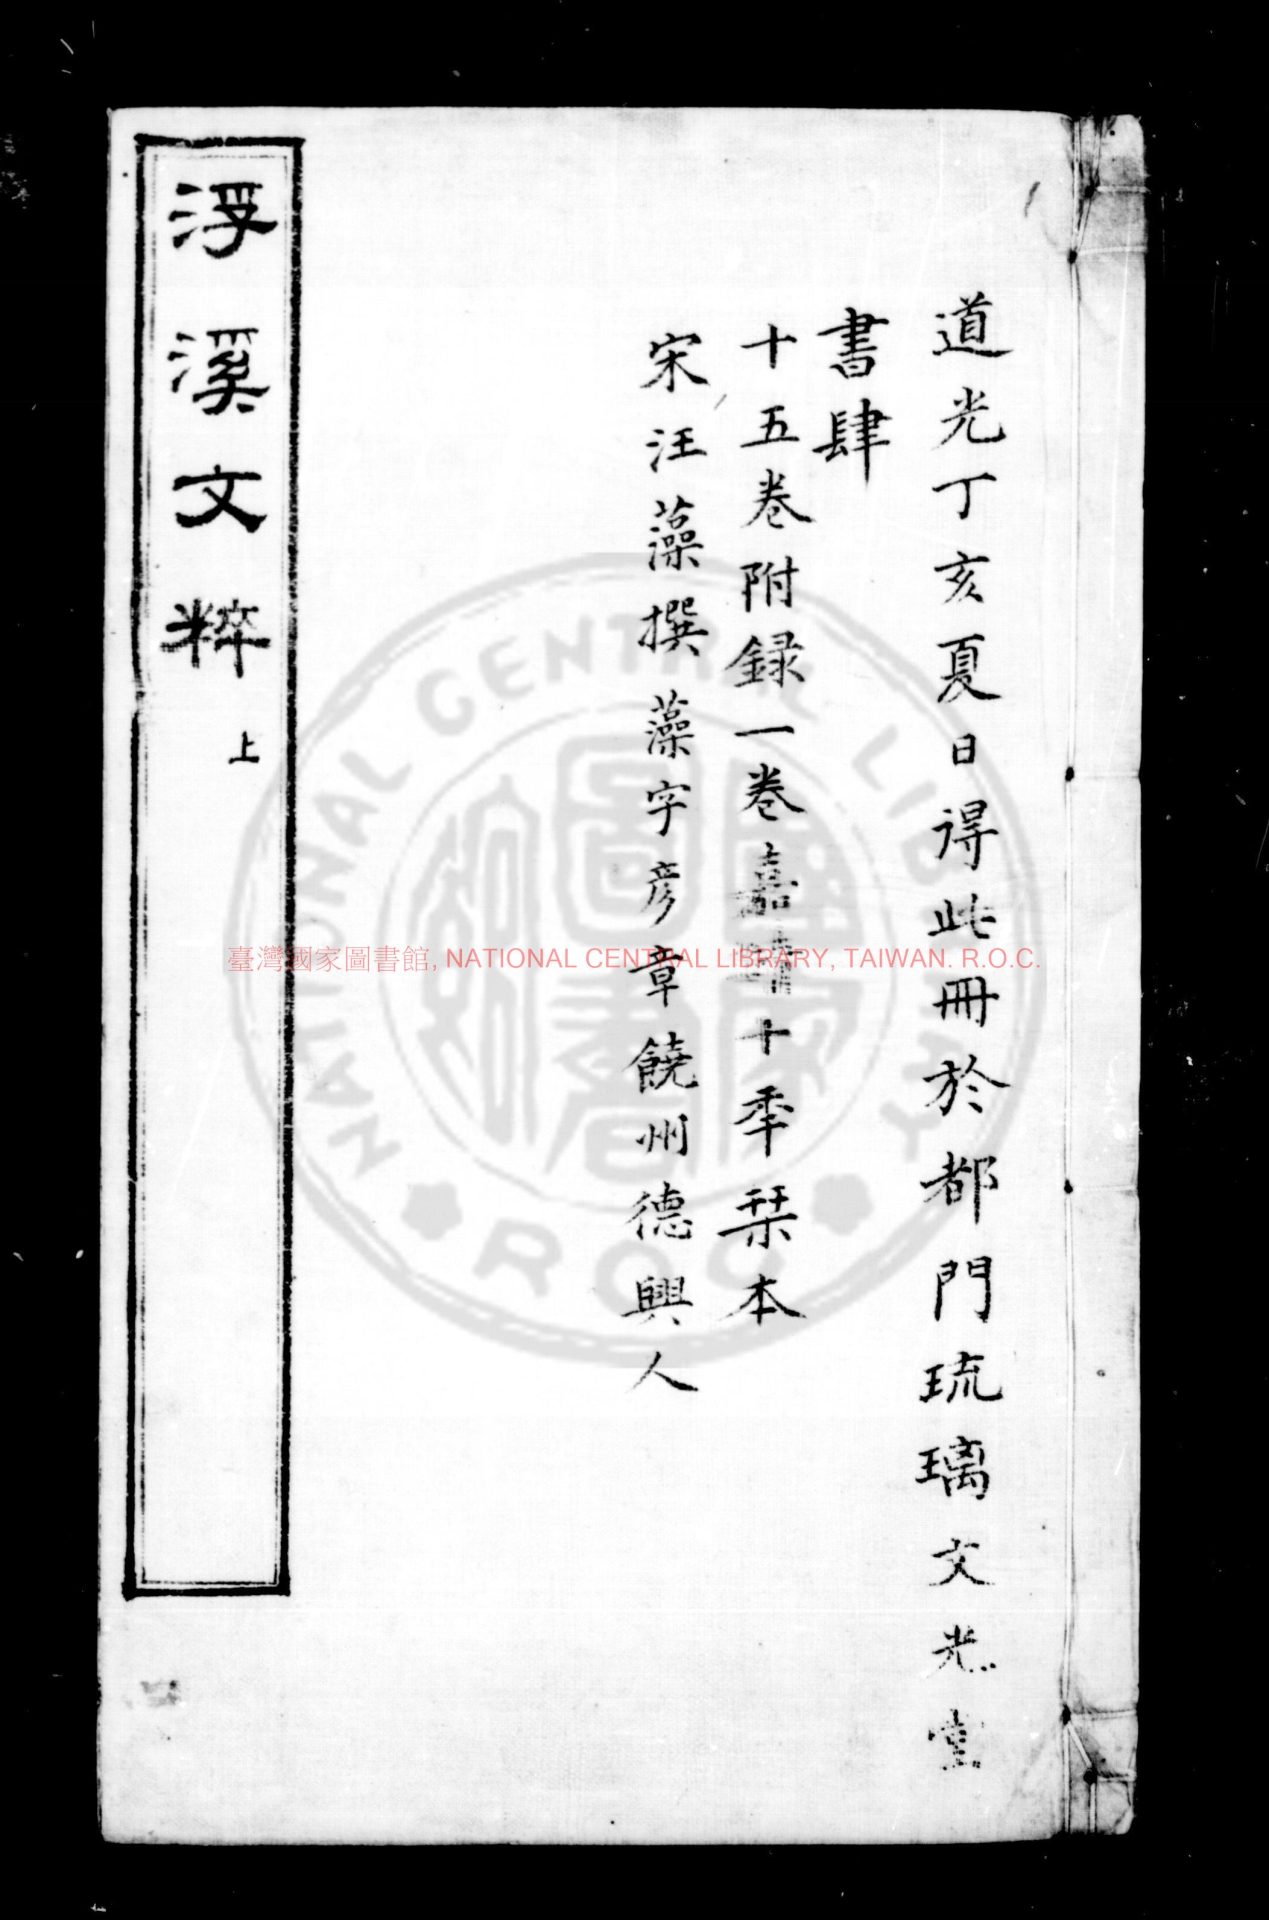 道光丁亥夏日得此冊於都門琉璃文光堂
書肆
十五卷附録一卷嘉靖十秊栞本
宋汪藻撰藻字彥章饒州德興人
浮溪文粹
上
臺灣國家圖書館, NATIONAL CENTRAL LIBRARY, TAIWAN. R.O.C.
NATIONAL CENTRAL LIBRARY
ROC